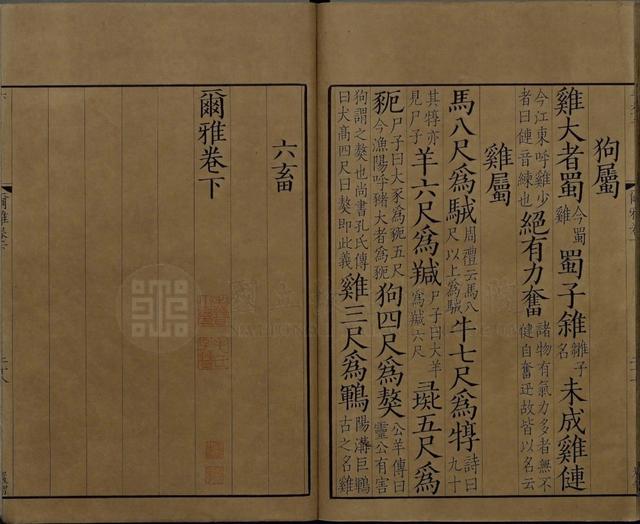 狗屬
雞大者蜀今蜀雞蜀子雓雛子名未成雞僆
今江東呼雞少者曰僆音練也絕有力奮諸物有氣力多者無不健自奮迅故皆以名云
雞屬
馬八尺為駥周禮云馬八尺以上為駥牛七尺為犉詩曰九十
其犉亦見尸子羊六尺為羬尸子曰大羊為羬六尺彘五尺為
豟尸子曰大豕為豟五尺今漁陽呼豬大者為豟狗四尺為獒公羊傳曰靈公有害
狗謂之獒也尚書孔氏傳曰犬高四尺曰獒即此義雞三尺為鶤陽溝巨鶤古之名雞
六畜
爾雅卷下